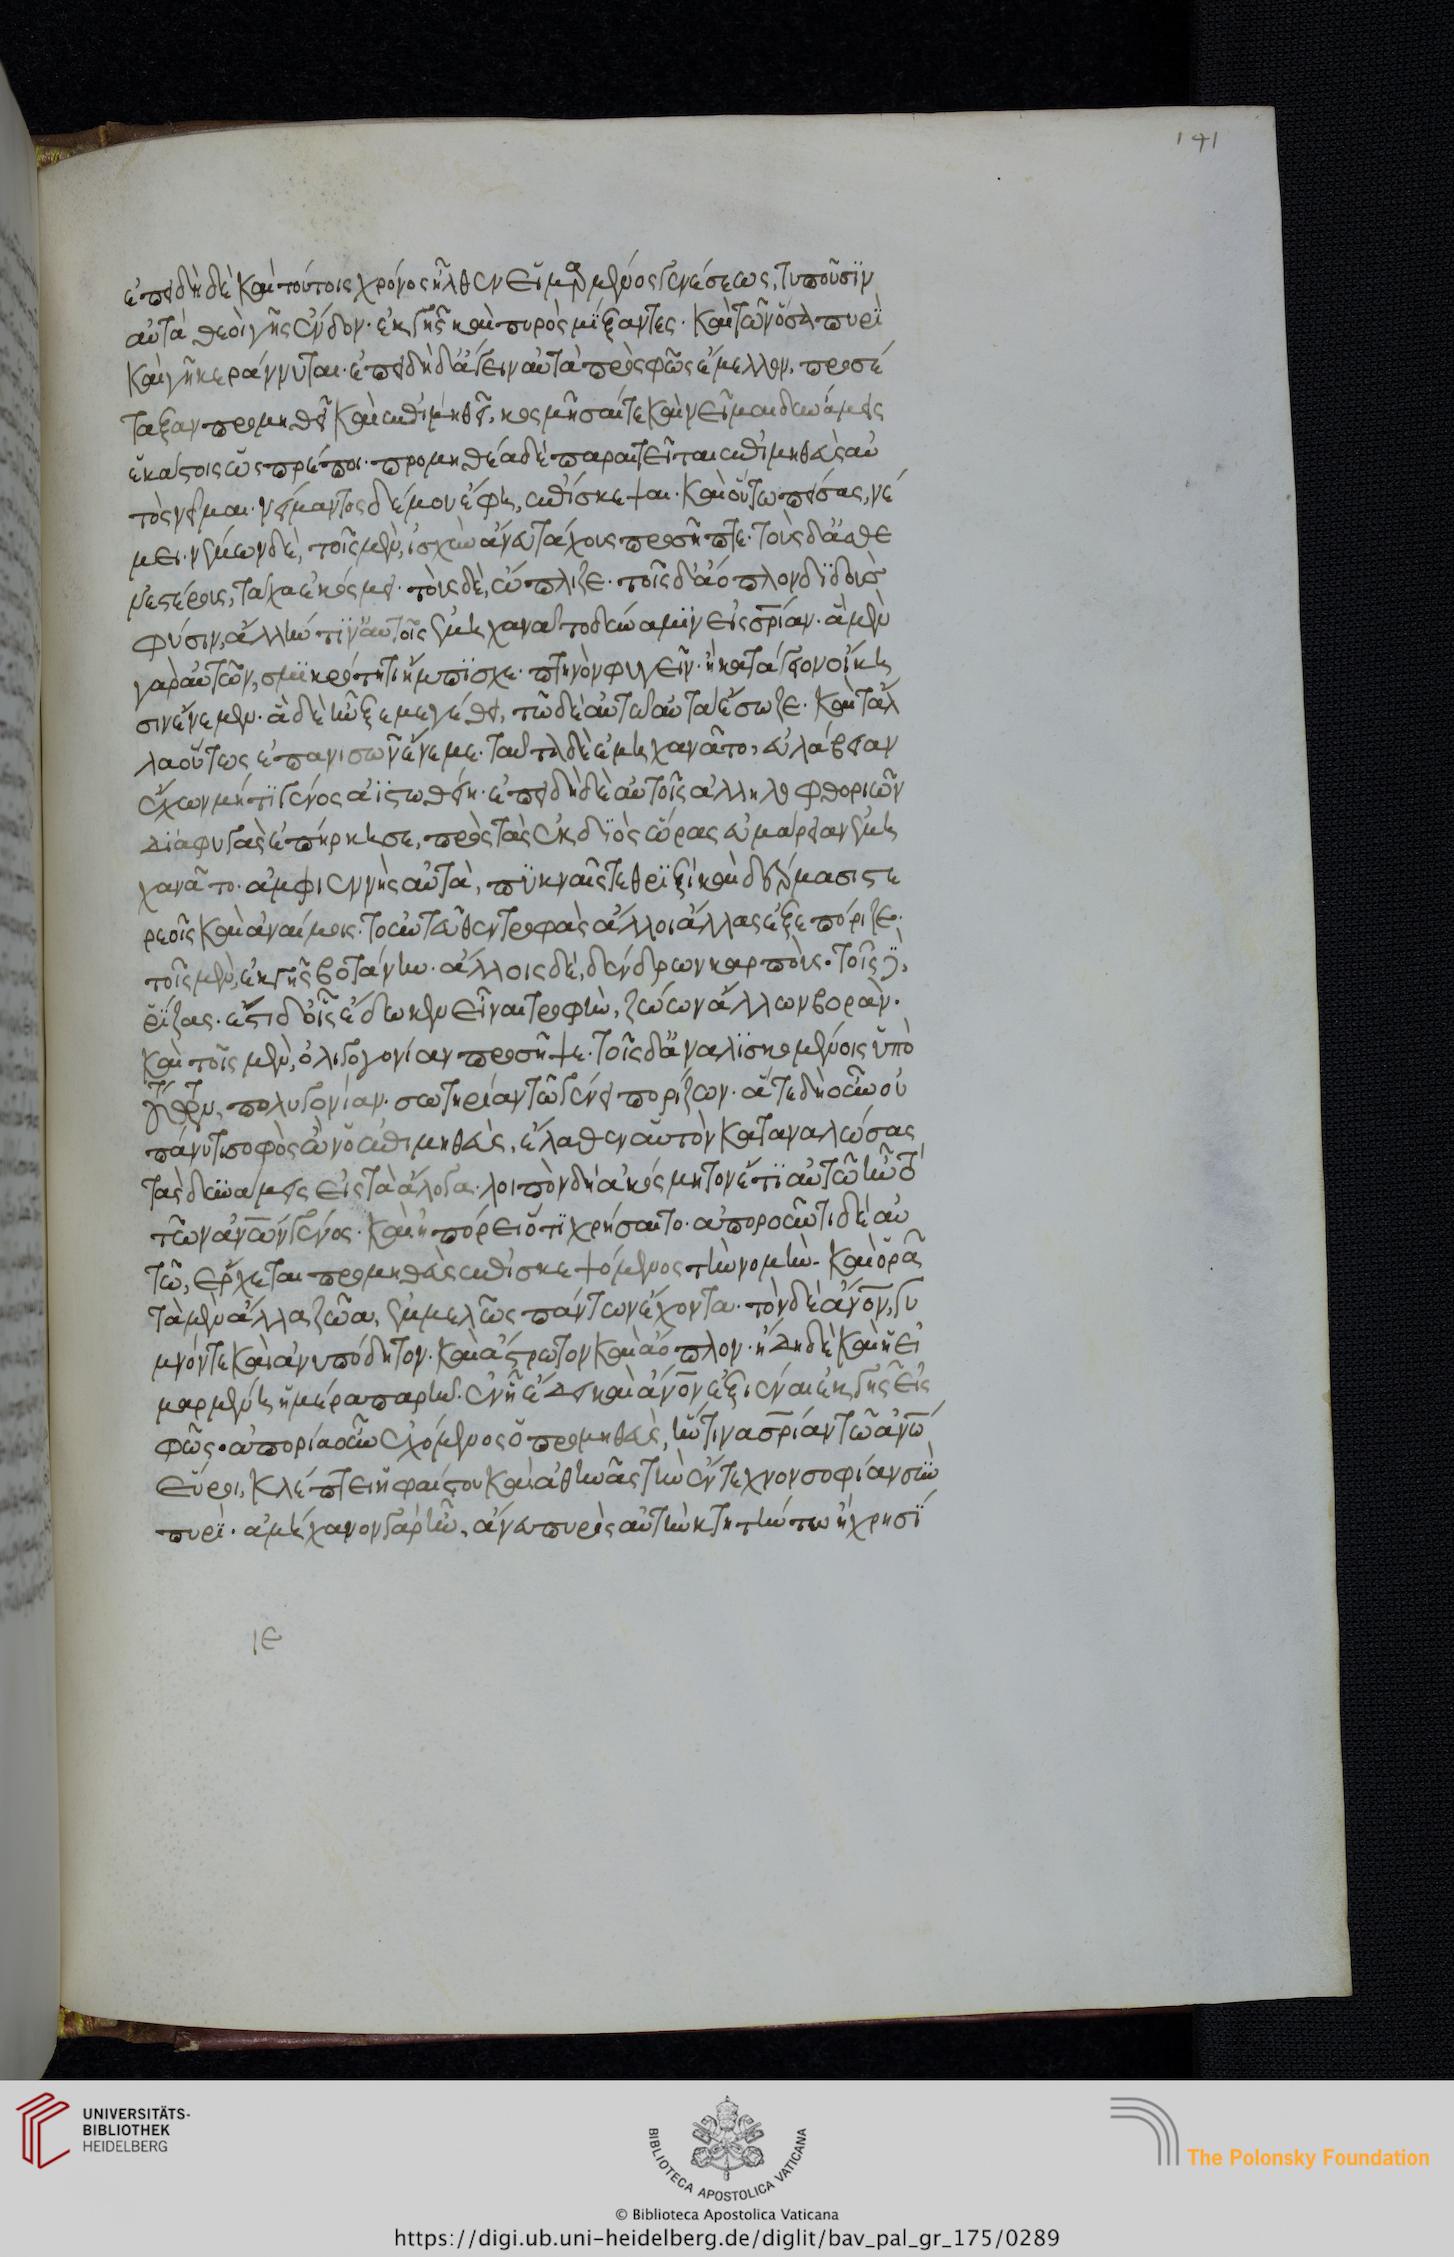 141
ἐπειδὴ δὲ καὶ τούτοις χρόνος ἦλθεν εἱμαρμένος γενέσεως, τυποῦσϊν
αὐτὰ θεοὶ γῆς ἔνδον· ἐκ γῆς καὶ πυρὸς μίξαντες· καὶ τῶν ὅσα πυρὶ
καὶ γῆ κεράννυται· ἐπειδὴ δ' ἄγειν αὐτὰ πρὸς φῶς ἔμελλον, προσέ
ταξαν προμηθεῖ καὶ ἐπιμηθεῖ, κοσμῆσαί τε καὶ νεῖμαι δυνάμεις
ἑκάστοις ὡς πρέπει· προμηθέα δὲ παραιτεῖται ἐπιμηθεὺς αὐ
τὸς νεῖμαι· νείμαντος δέ μου ἔφη, ἐπίσκεψαι· καὶ οὕτω πείσας, νέ
μει· νέμων δὲ, τοῖς μὲν, ἰσχὺν ἄνευ τάχους προσῆπτε· τοὺς δ' ἀσθε
νεστέρους, τάχει ἐκόσμει· τοὺς δὲ, ὥπλιζε· τοῖς δ' ἄοπλον διδοὺς
φύσιν, ἄλλην τϊν' αὐτοῖς ἐμηχανᾶτο δύναμιν εἰς σ̅ρίαν· ἃ μὲν
γὰρ αὐτῶν, σμϊκρότητι ἤμπϊσχε· πτηνὸν φυγεῖν· ἢ κατάγειον οἴκη
σιν ἔνεμεν· ἃ δὲ ηὖξε μεγέθει, τῶδε αὐτῶ αὐτὰ ἔσωζε· καὶ τἆλ
λα οὕτως ἐπανισῶν ἔνεμε· ταῦτα δὲ ἐμηχανᾶτο, εὐλάβειαν
ἔχων μή τϊ γένος ἀϊστωθείη· ἐπειδὴ δὲ αὐτοῖς ἀλληλοφθοριῶν
διαφυγὰς ἐπήρκεσε, πρὸς τὰς ἐκ δϊὸς ὥρας εὐμάρειαν ἐμη
χανᾶτο· ἀμφιεννὺς αὐτὰ, πϋκναῖς τε θριξὶ καὶ δέρμασι στε
ρεοῖς καὶ ἀναίμοις· τοὐντεῦθεν τροφὰς ἄλλοι ἄλλας ἐξεπόριζε·
τοῖς μὲν, ἐκ γῆς βοτάνην· ἄλλοις δὲ, δένδρων καρποὺς· τοῖς δὲ,
ῥίζας· ἔστι δ' οἷς ἔδωκεν εἶναι τροφὴν, ζώων ἄλλων βορὰν·
καὶ τοῖς μὲν, ὀλιγογονίαν προσῆψε· τοῖς δ' ἀναλϊσκομένοις ὑπὸ
τούτων, πολυγονίαν· σωτηρίαν τῶ γένει πορίζων· ἅτε δὴ οὖν οὐ
πάνυ τι σοφὸς ὢν ὁ ἐπιμηθεὺς, ἔλαθεν αὑτὸν καταναλώσας
τὰς δυνάμεις εἰς τὰ ἄλογα· λοιπὸν δὴ ἀκόσμητον ἔτϊ αὐτῶ ἦν τὸ
τῶν ἀν̅ων γένος· καὶ ἠπόρει ὅτϊ χρήσαιτο· ἀποροῦντι δὲ αὐ
τῶ, ἔρχεται προμηθεὺς ἐπισκεψόμενος τὴν νομὴν· καὶ ὁρᾶ
τὰ μὲν ἄλλα ζῶα, ἐμμελῶς πάντων ἔχοντα· τὸν δὲ ἄν̅ον, γυ
μνόν τε καὶ ἀνυπόδητον· καὶ ἄστρωτον καὶ ἄοπλον· ἤδη δὲ καὶ ἡ εἱ
μαρμένη ἡμέρα παρῆν· ἐν ἧ ἔδει καὶ ἄν̅ον ἐξιέναι ἐκ γῆς εἰς
φῶς· ἀπορία οὖν ἐχόμενος ὁ προμηθεὺς, ἥντινα σ̅ρίαν τῶ ἀν̅ω
εὕροι, κλέπτει ἡφαίστου καὶ ἀθηνᾶς τὴν ἔντεχνον σοφίαν σὺν
πυρϊ· ἀμήχανον γὰρ ἦν, ἄνευ πυρὸς αὐτὴν κτητήν τω ἢ χρησί
ιε
UNIVERSITÄTS-
BIBLIOTHEK
HEIDELBERG
BIBLIOTECA APOSTOLICA VATICANA
The Polonsky Foundation
© Biblioteca Apostolica Vaticana
https://digi.ub.uni-heidelberg.de/diglit/bav_pal_gr_175/0289